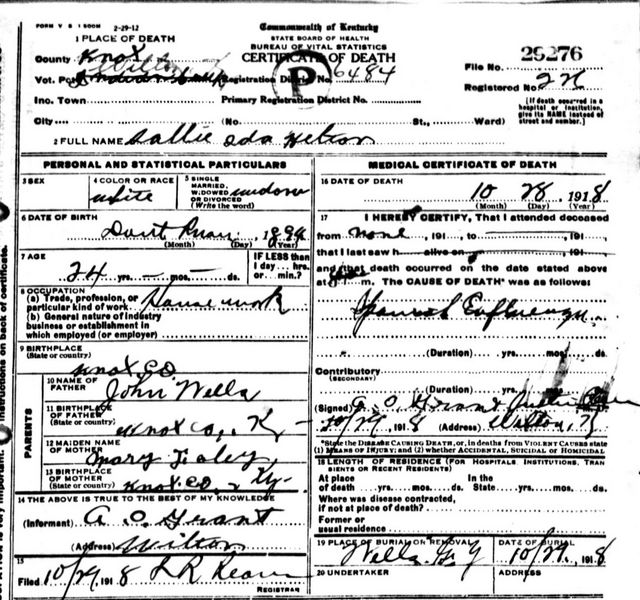 FORM V S 1 500M 2-29-12
Commonwealth of Kentucky
STATE BOARD OF HEALTH
BUREAU OF VITAL STATISTICS
CERTIFICATE OF DEATH
1 PLACE OF DEATH
County Knox
Vot. Pct. Wilton Registration District No. 6484
P
File No. 29276
Registered No.
Inc. Town Primary Registration District No.
[If death occurred in a hospital or Institution, give its NAME instead of street and number.]
City (No. St., Ward)
2 FULL NAME Sallie Ida Helton
PERSONAL AND STATISTICAL PARTICULARS
3 SEX
4 COLOR OR RACE white
5 SINGLE MARRIED, WIDOWED OR DIVORCED (Write the word) widow
6 DATE OF BIRTH Dont Know 1894
(Month) (Day) (Year)
7 AGE 24 yrs. — mos. — ds.
IF LESS than 1 day... hrs. or min.?
8 OCCUPATION
(a) Trade, profession, or particular kind of work House work
(b) General nature of industry business or establishment in which employed (or employer)
9 BIRTHPLACE (State or country) Knox Co
PARENTS
10 NAME OF FATHER John Wells
11 BIRTHPLACE OF FATHER (State or country) Knox Co, Ky
12 MAIDEN NAME OF MOTHER Mary
13 BIRTHPLACE OF MOTHER (State or country) Knox Co Ky
14 THE ABOVE IS TRUE TO THE BEST OF MY KNOWLEDGE
(Informant) A O Grant
(Address) Wilton
15
Filed 10/29 1918
REGISTRAR
MEDICAL CERTIFICATE OF DEATH
16 DATE OF DEATH
10 28, 1918
(Month) (Day) (Year)
17 I HEREBY CERTIFY, That I attended deceased
from none, 191 , to , 191 ,
that I last saw h alive on , 191 ,
and that death occurred on the date stated above
at m. The CAUSE OF DEATH* was as follows:
Spanish
(Duration) yrs. mos. ds.
Contributory
(SECONDARY)
(Duration) yrs. mos. ds.
(Signed) A O Grant
10/29, 1918 (Address) Wilton, K
*State the DISEASE CAUSING DEATH, or, in deaths from VIOLENT CAUSES state
(1) MEANS OF INJURY; and (2) whether ACCIDENTAL, SUICIDAL or HOMICIDAL
18 LENGTH OF RESIDENCE (FOR HOSPITALS INSTITUTIONS, TRANSIENTS OR RECENT RESIDENTS)
At place of death yrs. mos. ds.
In the State yrs. mos. ds.
Where was disease contracted, if not at place of death?
Former or usual residence
19 PLACE OF BURIAL OR REMOVAL Wells G. Y
DATE OF BURIAL 10/29, 1918
20 UNDERTAKER
ADDRESS